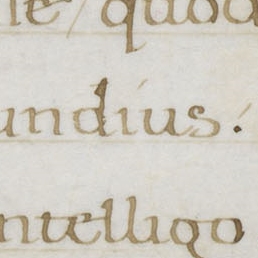 quod
undius.
ntelligo